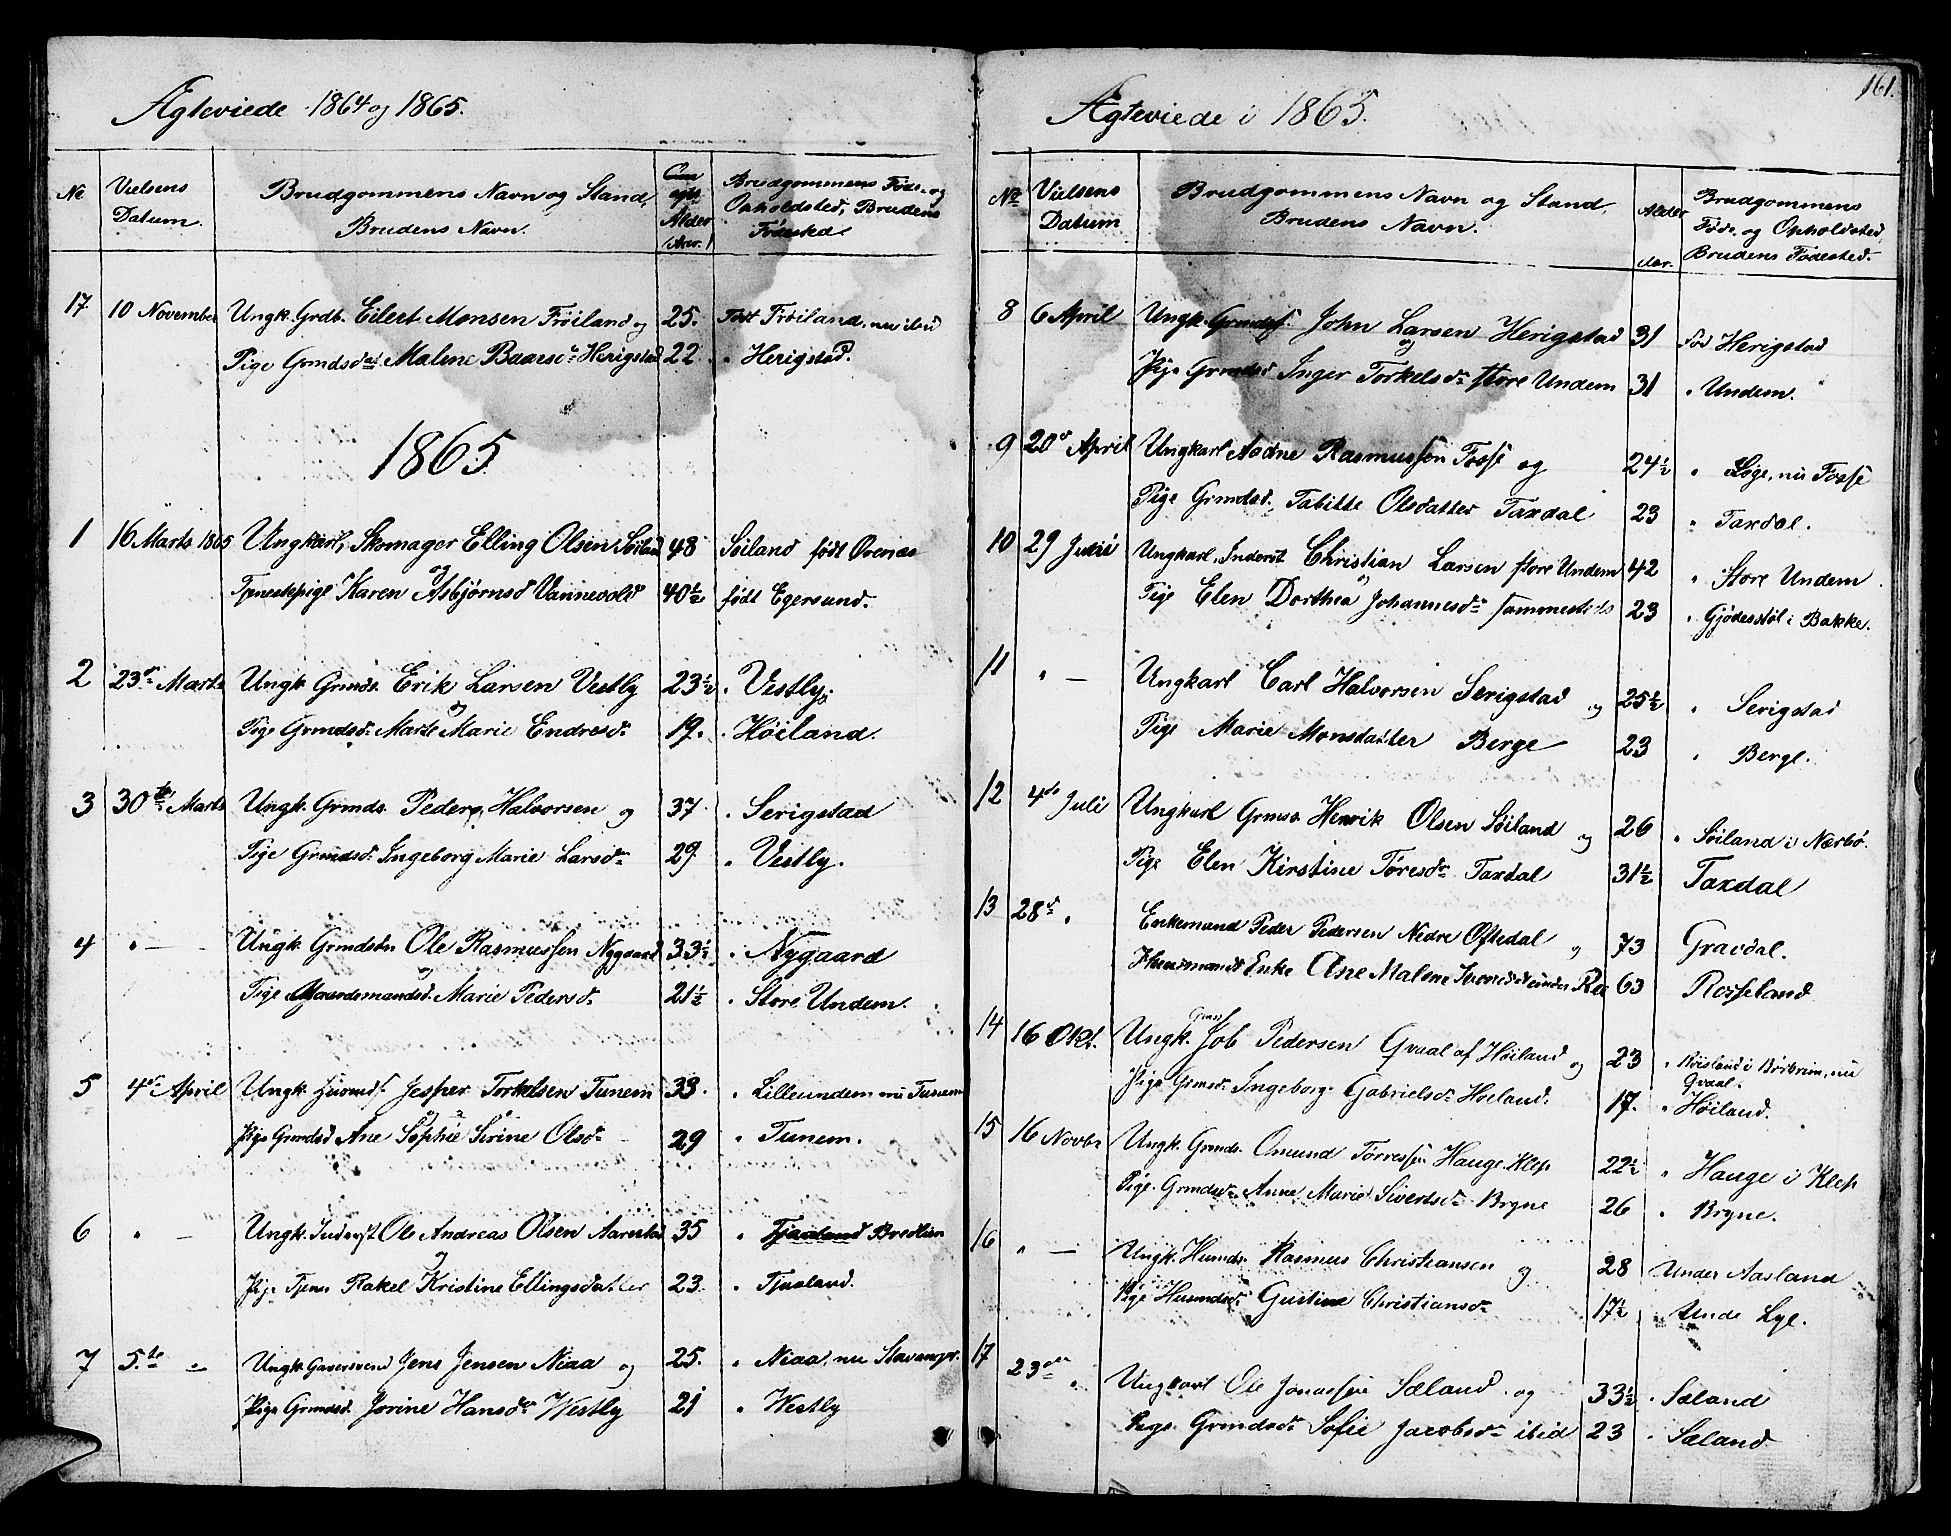 Ægteviede 1864 og 1865.
No Vielsens Datum. Brudgommens Navn og Stand, Brudens Navn. Alder Aar. Brudgommens Føde- og Opholdsted, Brudens Fødested.
17 10 November Ungk. Grdb. Eilert Monsen Frøiland og 25. Født Frøiland, nu ibid
Pige Grmdsd. Malene Baardsd. Herigstad 22 " Herigstad.
1865
1 16 Marts 1865 Ungkarl, Skomager Elling Olsen Søiland 48 Søiland født Ovenæs
og
Tjenestepige Karen Asbjørnsd Vannevold 40½ født Egersund.
2 23de Marts Ungk. Grmds. Erik Larsen Vestly 23½ " Vestly;
og
Pige Grmdsd. Marte Marie Endresd. 19. " Høiland.
3 30te Marts Ungk. Grmds. Peder Halvorsen og 37 " Serigstad
Pige Grmdsd. Ingeborg Marie Larsd. 29 " Vestly.
4 " — Ungk. Grmdsøn Ole Rasmussen Nygaard 33½ " Nygaard
og
Pige Gaardmandsd. Marie Pedersd. 21½ " Store Undem.
5 4de April Ungk. Jesper Torkelsen Tunem 33. " Lilleundem nu Tunem
og
Pige Grmdsd Ane Sophie Sirine Olsd. 29 " Tunem.
6 " — Ungk. Inderst Ole Andreas Olsen Aarestad 35 " Tjaaland Bredlien
og
Pige Tjen. Rakel Kristine Ellingsdatter 23. " Tjaaland.
7 5.te " Ungk. Garversvend Jens Jensen Niaa og 25. " Niaa, nu Stavanger.
Pige Grmdsd. Jorine Hansd. Westly 21 " Westly
161.
Ægteviede i 1865.
No Vielsens Datum Brudgommens Navn og Stand, Brudens Navn. Alder Aar. Brudgommens Føde- og Opholdsted, Brudens Fødested.
8 6 April Ungk. Grmds. John Larsen Herigstad 31 Fød Herigstad
og
Pige Grmdsd Inger Torkelsd. store Undem 31 " Undem.
9 20de April Ungkarl Aadne Rasmussen Fosse og 24½ " Løge, nu Fosse
Pige Grmdsd. Tabitte Olsdatter Taxdal 23 " Taxdal.
10 29 Juni Ungkarl, Inderst Christian Larsen store Undem 42 " Store Undem
og
Pige Elen Dorthea Johannesd. sammesteds 23 " Gjødesstøl i Bakke.
11 " — Ungkarl Carl Halvorsen Serigstad og 25½ " Serigstad
Pige Marie Monsdatter Berge 23 " Berge.
12 4de Juli Ungkarl Grmds. Henrik Olsen Søiland og 26 " Søiland i Nærbø.
Pige Elen Kirstine Toresd. Taxdal 31½ Taxdal
13 28de " Enkemand Peder Pedersen Nedre Oftedal og 73 Gravdal.
Huusmands Enke Ane Malene 63 Rosseland
14 16 Okt. Ungk. Grmds. Job Pedersen Qvaal af Høiland og 23 " Høisland i Birkrim, nu Qvaal.
Pige Grmdsd. Ingeborg Gabrielsd. Høiland. 17. " Høiland.
15 16 Novbr Ungk. Grmds. Omund Torressen Hauge Klep 22½ " Hauge i Klep
Pige Grmdsd. Anne Marie Sivertsd. Bryne 26 " Bryne.
16 " — Ungk. Husmds. Rasmus Christiansen og 28 Under Aasland
Pige Husmdsd. Gustine Christiansd. 17½ Unde Lye.
17 23de " Ungkarl Ole Jonassen Sæland og 33½ " Sæland
Pige Grmdsd. Sofie Jacobsd. ibid 23 " Sæland